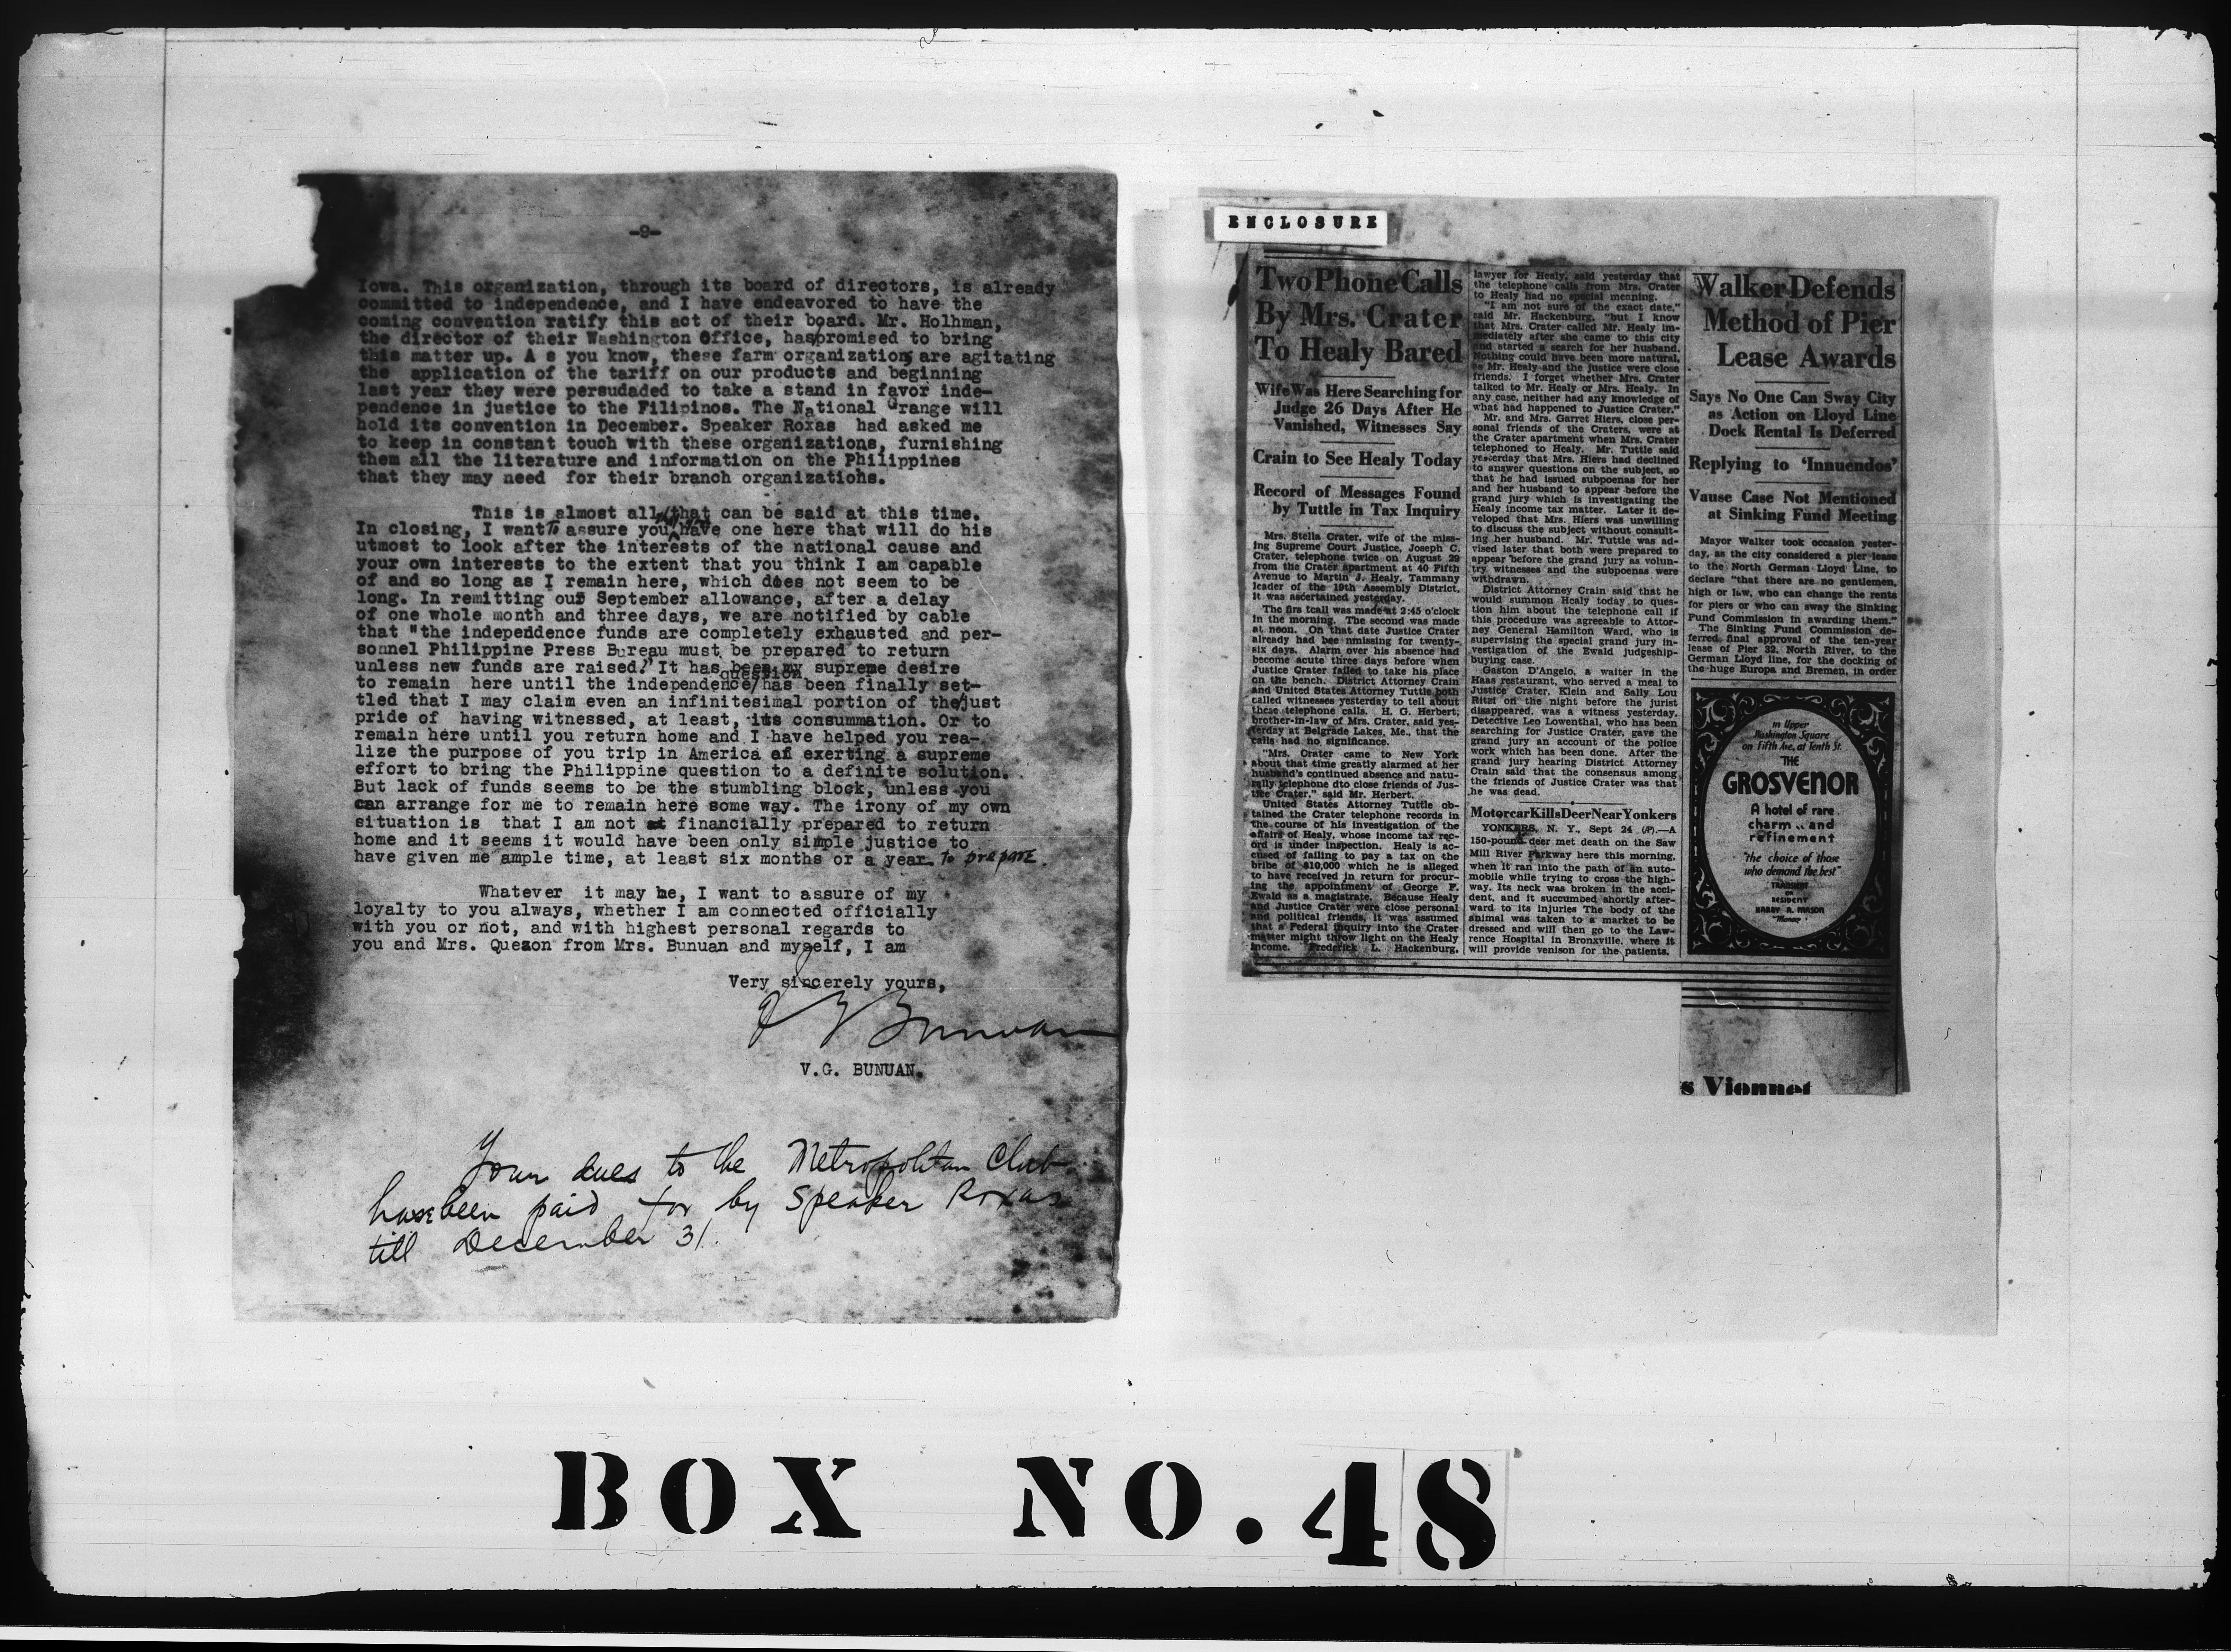 -9-
Iowa. This organization, through its board of directors, is already
committed to independence, and I have endeavored to have the
coming convention ratify this act of their board. Mr. Holhman,
the director of their Washington Office, has promised to bring
this matter up. A s you know, these farm organizations are agitating
the application of the tariff on our products and beginning
last year they were persudaded to take a stand in favor inde-
pendence in justice to the Filipinos. The National Grange will
hold its convention in December. Speaker Roxas had asked me
to keep in constant touch with these organizations, furnishing
them all the literature and information on the Philippines
that they may need for their branch organizations.
This is almost all that can be said at this time.
In closing, I want to assure you have one here that will do his
utmost to look after the interests of the national cause and
your own interests to the extent that you think I am capable
of and so long as I remain here, which does not seem to be
long. In remitting our September allowance, after a delay
of one whole month and three days, we are notified by cable
that "the independence funds are completely exhausted and per-
sonnel Philippine Press Bureau must be prepared to return
unless new funds are raised." It has been my supreme desire
to remain here until the independence/question has been finally set-
tled that I may claim even an infinitesimal portion of the just
pride of having witnessed, at least, its consummation. Or to
remain here until you return home and I have helped you rea-
lize the purpose of you trip in America of exerting a supreme
effort to bring the Philippine question to a definite solution.
But lack of funds seems to be the stumbling block, unless you
can arrange for me to remain here some way. The irony of my own
situation is that I am not financially prepared to return
home and it seems it would have been only simple justice to
have given me ample time, at least six months or a year to prepare.
Whatever it may be, I want to assure of my
loyalty to you always, whether I am connected officially
with you or not, and with highest personal regards to
you and Mrs. Quezon from Mrs. Bunuan and myself, I am
Very sincerely yours,
V G Bunuan
V.G. BUNUAN.
Your dues to the Metropolitan Club
have been paid for by Speaker Roxas
till December 31.
ENCLOSURE
Two Phone Calls
By Mrs. Crater
To Healy Bared
Wife Was Here Searching for
Judge 26 Days After He
Vanished, Witnesses Say
Crain to See Healy Today
Record of Messages Found
by Tuttle in Tax Inquiry
Mrs. Stella Crater, wife of the miss-
ing Supreme Court Justice, Joseph C.
Crater, telephone twice on August 29
from the Crater apartment at 40 Fifth
Avenue to Martin J. Healy, Tammany
leader of the 19th Assembly District,
it was ascertained yesterday.
The firs tcall was made at 2:45 o'clock
in the morning. The second was made
at noon. On that date Justice Crater
already had bee nmissing for twenty-
six days. Alarm over his absence had
become acute three days before when
Justice Crater failed to take his place
on the bench. District Attorney Crain
and United States Attorney Tuttle both
called witnesses yesterday to tell about
these telephone calls. H. G. Herbert,
brother-in-law of Mrs. Crater, said yes-
terday at Belgrade Lakes, Me., that the
calls had no significance.
"Mrs. Crater came to New York
about that time greatly alarmed at her
husband's continued absence and natu-
rally telephone dto close friends of Jus-
tice Crater," said Mr. Herbert.
United States Attorney Tuttle ob-
tained the Crater telephone records in
the course of his investigation of the
affairs of Healy, whose income tax rec-
ord is under inspection. Healy is ac-
cused of failing to pay a tax on the
bribe of $10,000 which he is alleged
to have received in return for procur-
ing the appointment of George F.
Ewald as a magistrate. Because Healy
and Justice Crater were close personal
and political friends, it was assumed
that a Federal inquiry into the Crater
matter might throw light on the Healy
income. Frederick L. Hackenburg,
lawyer for Healy, said yesterday that
the telephone calls from Mrs. Crater
to Healy had no special meaning.
"I am not sure of the exact date,"
said Mr. Hackenburg, "but I know
that Mrs. Crater called Mr. Healy im-
mediately after she came to this city
and started a search for her husband.
Nothing could have been more natural,
as Mr. Healy and the justice were close
friends. I forget whether Mrs. Crater
talked to Mr. Healy or Mrs. Healy. In
any case, neither had any knowledge of
what had happened to Justice Crater."
Mr. and Mrs. Garret Hiers, close per-
sonal friends of the Craters, were at
the Crater apartment when Mrs. Crater
telephoned to Healy. Mr. Tuttle said
yesterday that Mrs. Hiers had declined
to answer questions on the subject, so
that he had issued subpoenas for her
and her husband to appear before the
grand jury which is investigating the
Healy income tax matter. Later it de-
veloped that Mrs. Hiers was unwilling
to discuss the subject without consult-
ing her husband. Mr. Tuttle was ad-
vised later that both were prepared to
appear before the grand jury as volun-
try witnesses and the subpoenas were
withdrawn.
District Attorney Crain said that he
would summon Healy today to ques-
tion him about the telephone call if
this procedure was agreeable to Attor-
ney General Hamilton Ward, who is
supervising the special grand jury in-
vestigation of the Ewald judgeship-
buying case.
Gaston D'Angelo, a waiter in the
Haas restaurant, who served a meal to
Justice Crater, Klein and Sally Lou
Ritzi on the night before the jurist
disappeared, was a witness yesterday.
Detective Leo Lowenthal, who has been
searching for Justice Crater, gave the
grand jury an account of the police
work which has been done. After the
grand jury hearing District Attorney
Crain said that the consensus among
the friends of Justice Crater was that
he was dead.
Motorcar Kills Deer Near Yonkers
YONKERS, N. Y., Sept 24 (AP).—A
150-pound deer met death on the Saw
Mill River Parkway here this morning,
when it ran into the path of an auto-
mobile while trying to cross the high-
way. Its neck was broken in the acci-
dent, and it succumbed shortly after-
ward to its injuries The body of the
animal was taken to a market to be
dressed and will then go to the Law-
rence Hospital in Bronxville, where it
will provide venison for the patients.
Walker Defends
Method of Pier
Lease Awards
Says No One Can Sway City
as Action on Lloyd Line
Dock Rental Is Deferred
Replying to 'Innuendos'
Vause Case Not Mentioned
at Sinking Fund Meeting
Mayor Walker took occasion yester-
day, as the city considered a pier lease
to the North German Lloyd Line, to
declare "that there are no gentlemen,
high or law, who can change the rents
for piers or who can sway the Sinking
Fund Commission in awarding them."
The Sinking Fund Commission de-
ferred final approval of the ten-year
lease of Pier 32, North River, to the
German Lloyd line, for the docking of
the huge Europa and Bremen, in order
in Upper
Washington Square
on Fifth Ave. at Tenth St.
THE
GROSVENOR
A hotel of rare
charm .. and
refinement
"the choice of those
who demand the best"
TRANSIENT
OR
RESIDENT
HARRY A. MASON
"Manager"
s Vionnet
BOX NO. 48